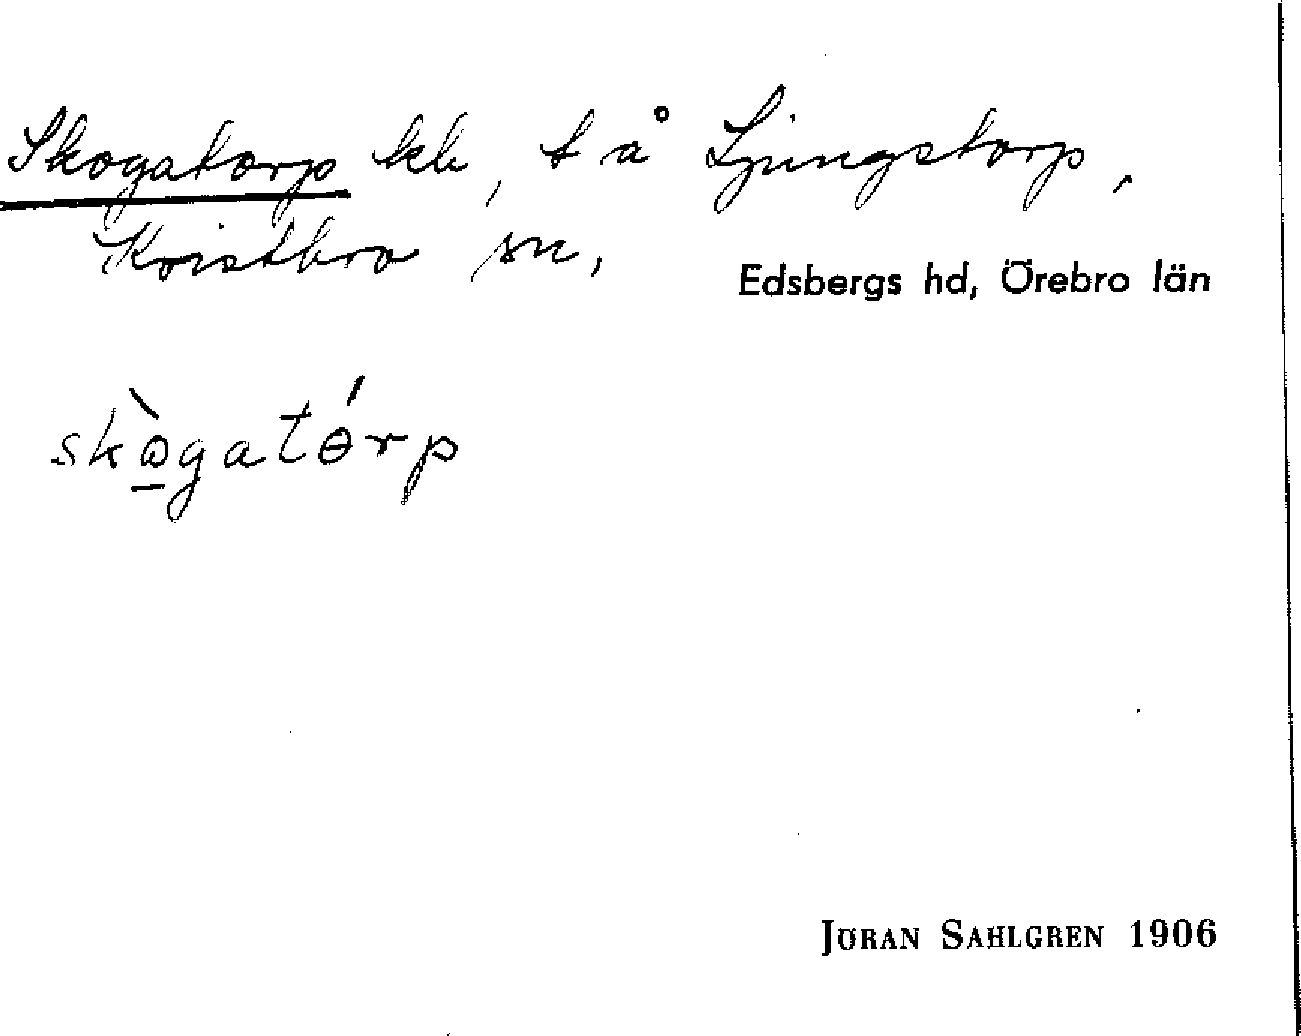 Skogatorp kb, t å Ljungstorp,
Kvistbro sn,
Edsbergs hd, Örebro län
skògatɵ́rp
JÖRAN SAHLGREN 1906